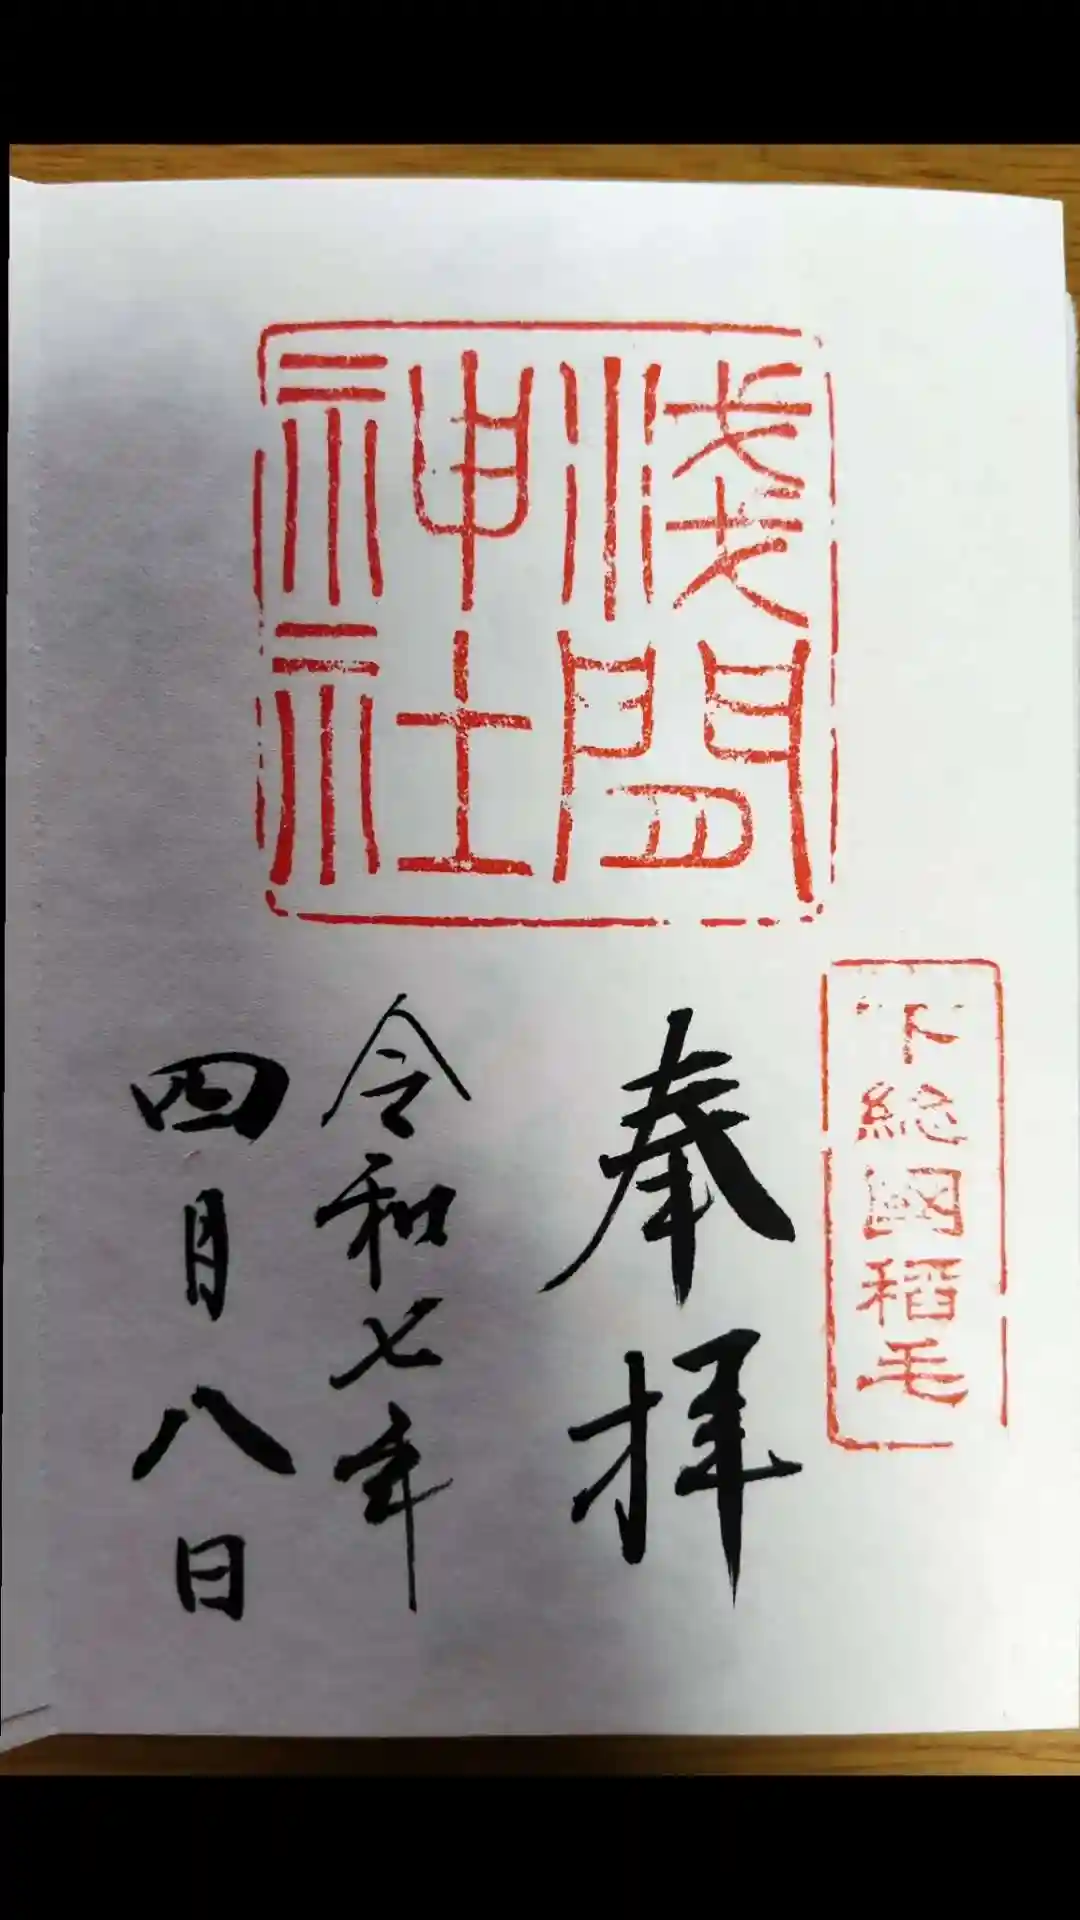 下総國稲毛
淺間
神社
奉拝
令和七年
四月八日